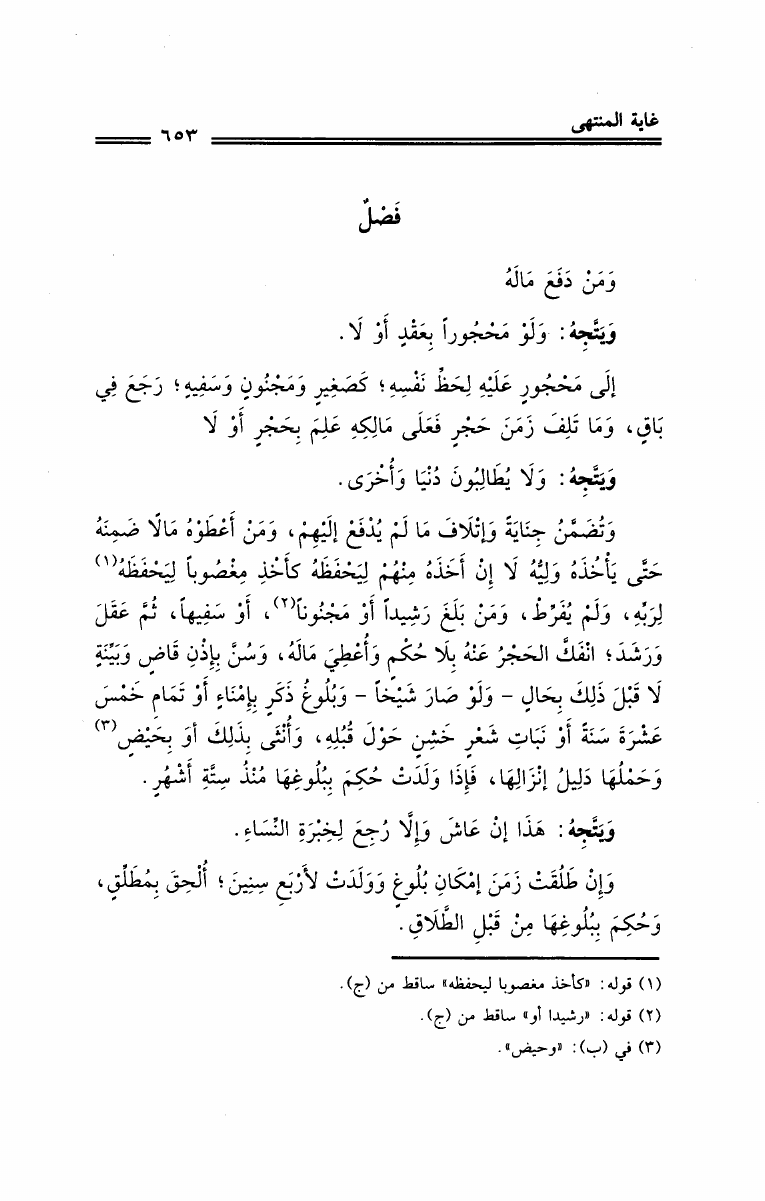 غاية المنتهى
٦٥٣
فَصْلٌ
وَمَنْ دَفَعَ مَالَهُ
وَيَتَّجِهُ: وَلَوْ مَحْجُوراً بِعَقْدٍ أَوْ لَا.
إِلَى مَحْجُورٍ عَلَيْهِ لِحَظِّ نَفْسِهِ؛ كَصَغِيرٍ وَمَجْنُونٍ وَسَفِيهٍ؛ رَجَعَ فِي
بَاقٍ، وَمَا تَلِفَ زَمَنَ حَجْرٍ فَعَلَى مَالِكِهِ عَلِمَ بِحَجْرٍ أَوْ لَا
وَيَتَّجِهُ: وَلَا يُطَالِبُونَ دُنْيَا وَأُخْرَى.
وَتُضَمَّنُ جِنَايَةً وَإِتْلَافَ مَا لَمْ يُدْفَعْ إِلَيْهِمْ، وَمَنْ أَعْطَوْهُ مَالًا ضَمِنَهُ
حَتَّى يَأْخُذَهُ وَلِيُّهُ لَا إِنْ أَخَذَهُ مِنْهُمْ لِيَحْفَظَهُ كَأَخْذِ مِغْصُوباً لِيَحْفَظَهُ(١)
لِرَبِّهِ، وَلَمْ يُفَرِّطْ، وَمَنْ بَلَغَ رَشِيداً أَوْ مَجْنُوناً(٢)، أَوْ سَفِيهاً، ثُمَّ عَقَلَ
وَرَشَدَ؛ انْفَكَّ الحَجْرُ عَنْهُ بِلَا حُكْمٍ وَأُعْطِيَ مَالَهُ، وَسُنَّ بِإِذْنِ قَاضٍ وَبَيِّنَةٍ
لَا قَبْلَ ذَلِكَ بِحَالٍ - وَلَوْ صَارَ شَيْخاً - وَبُلُوغُ ذَكَرٍ بِإِمْنَاءٍ أَوْ تَمَامِ خَمْسَ
عَشْرَةَ سَنَةً أَوْ نَبَاتِ شَعْرٍ خَشِنٍ حَوْلَ قُبُلِهِ، وَأُنْثَى بِذَلِكَ أوَ بِحَيْضٍ(٣)
وَحَمْلُهَا دَلِيلُ إِنْزَالِهَا، فَإِذَا وَلَدَتْ حُكِمَ بِبُلُوغِهَا مُنْذُ سِتَّةِ أَشْهُرٍ.
وَيَتَّجِهُ: هَذَا إِنْ عَاشَ وَإِلَّا رُجِعَ لِخِبْرَةِ النِّسَاءِ.
وَإِنْ طَلُقَتْ زَمَنَ إِمْكَانِ بُلُوغٍ وَوَلَدَتْ لأَرْبَعِ سِنِينَ؛ أُلْحِقَ بِمُطَلِّقٍ،
وَحُكِمَ بِبُلُوغِهَا مِنْ قَبْلِ الطَّلَاقِ.
(١) قوله: «كأخذ مغصوبا ليحفظه» ساقط من (ج).
(٢) قوله: «رشيدا أو» ساقط من (ج).
(٣) في (ب): «وحيض».